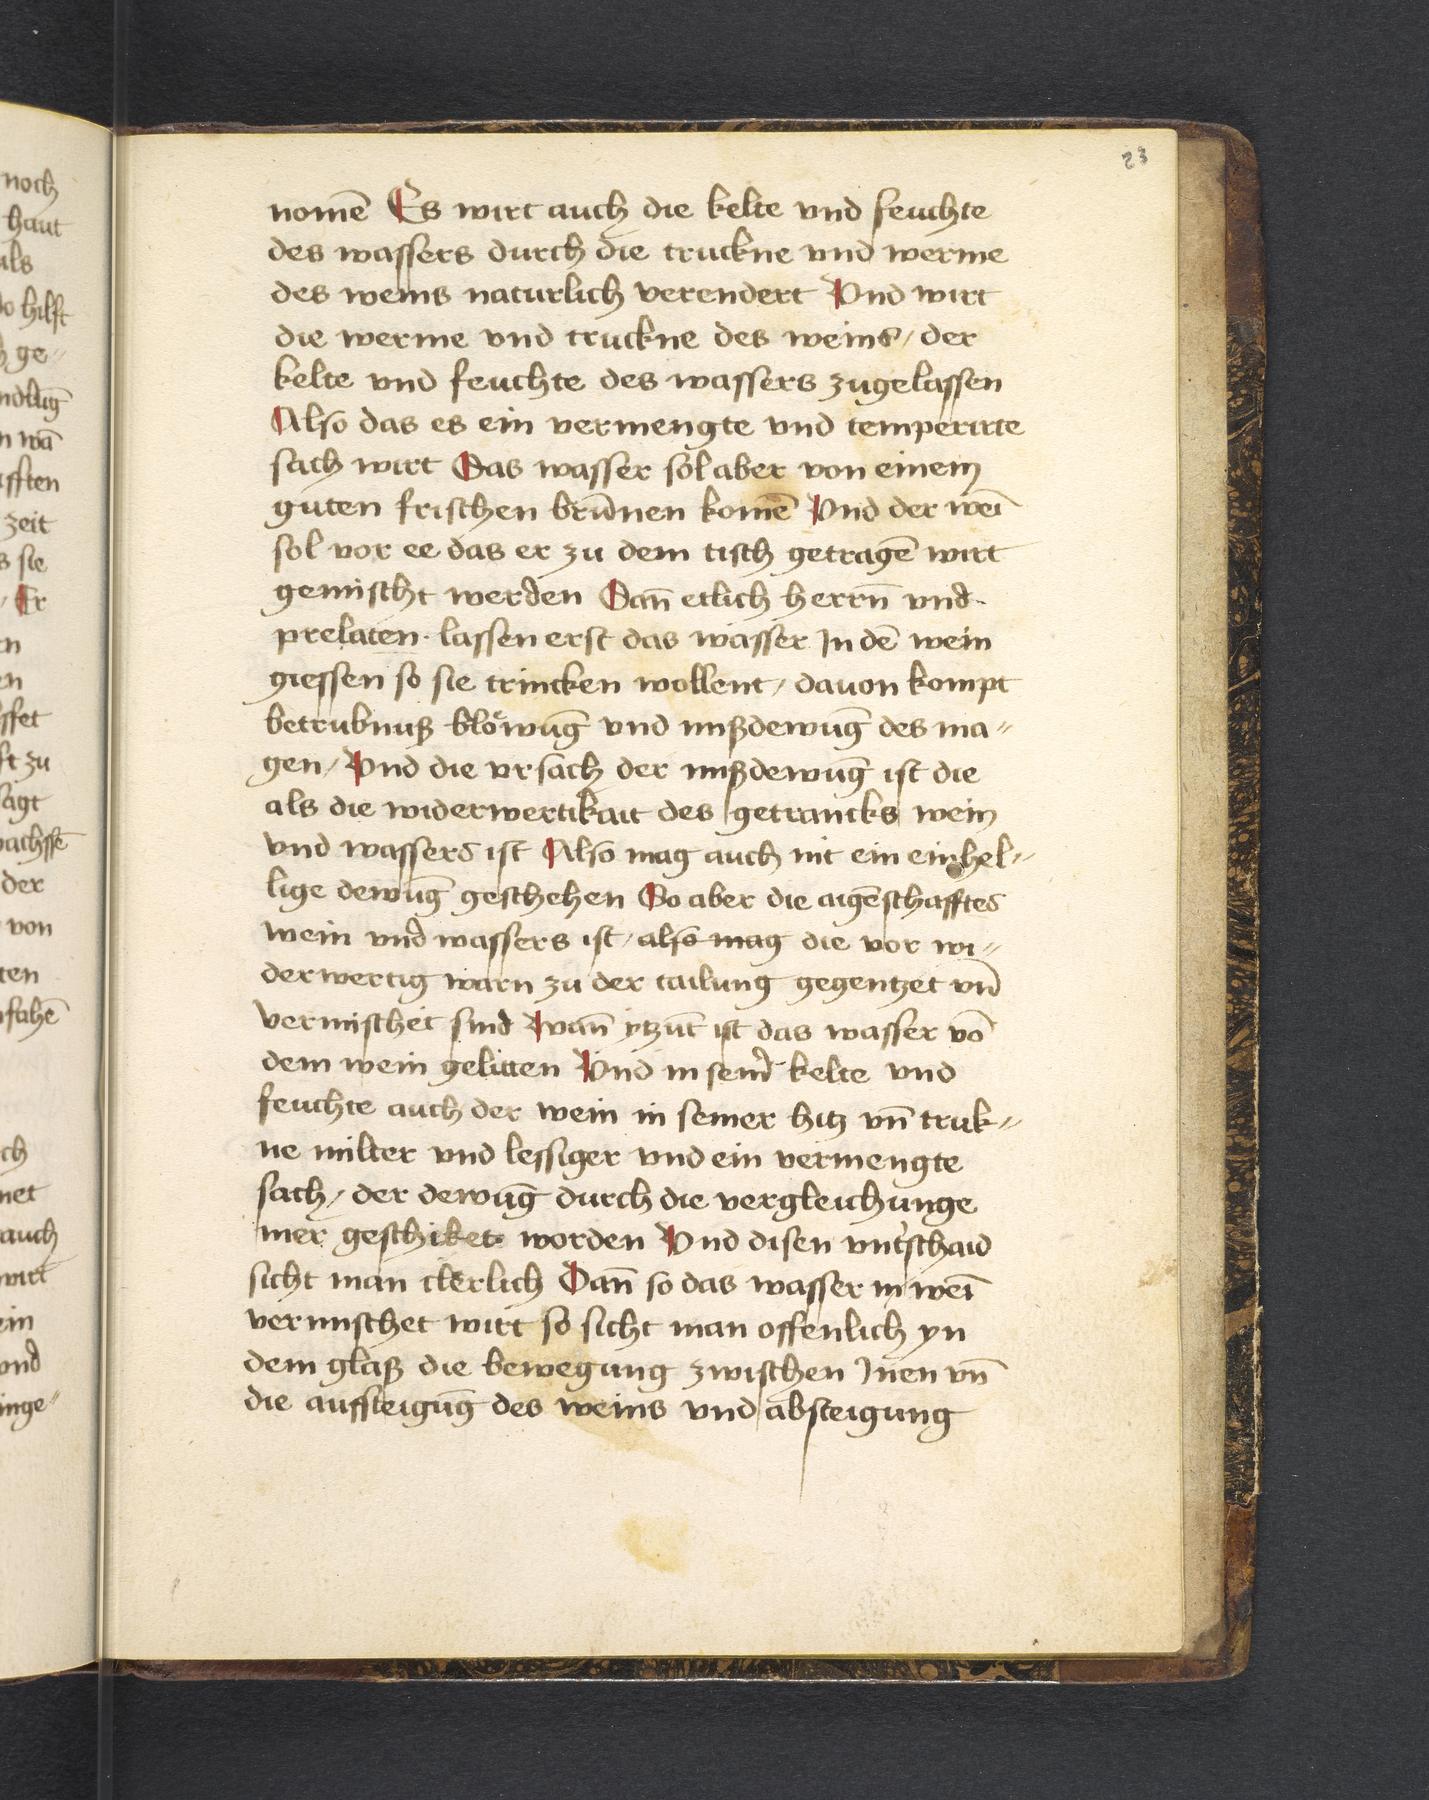 23
nomē Es wirt auch die kelte vnd feuchte
des wassers durch die truckne vnd werme
des weins naturlich verendert Vnd wirt
die werme vnd truckne des weins / der
kelte vnd feuchte des wassers zugelassen
Also das es ein vermengte vnd temperirte
sach wirt Das wasser sol aber von einem
guten frischen brūnen komē Vnd der weī
sol vor ee das er zu dem tisch getragē wirt
gemischt werden Dan̄ etlich herrn̄ vnd
prelaten · lassen erst das wasser In dē wein
giessen so sie trincken wollent / dauon kompt
betrubnuß bloͤwūg vnd mißdewūg des ma〃
gen / Vnd die vrsach der mißdewūg ist die
als die widerwertikait des getrancks wein
vnd wassers ist Also mag auch nit ein einhel〃
lige dewūg geschehen So aber die aigēschafft des
wein vnd wassers ist / also mag die vor wi〃
derwertig warn zu der tailung gegentzet vn̄
vermischet sind Wan̄ ytzūt ist das wasser vō
dem wein gelitten Vnd in seinr̄ kelte vnd
feuchte auch der wein in seiner hitz vn̄ truk〃
ne milter vnd lessiger vnd ein vermengte
sach / der dewūg durch die vergleichunge
mer geschiket worden Vnd disen vnt̄schaid
sicht man clerlich Dan̄ so das wasser in weī
vermischet wirt so sicht man offenlich yn
dem glaß die bewegung zwischen Inen vn̄
die auffsteigūg des weins vnd absteigung